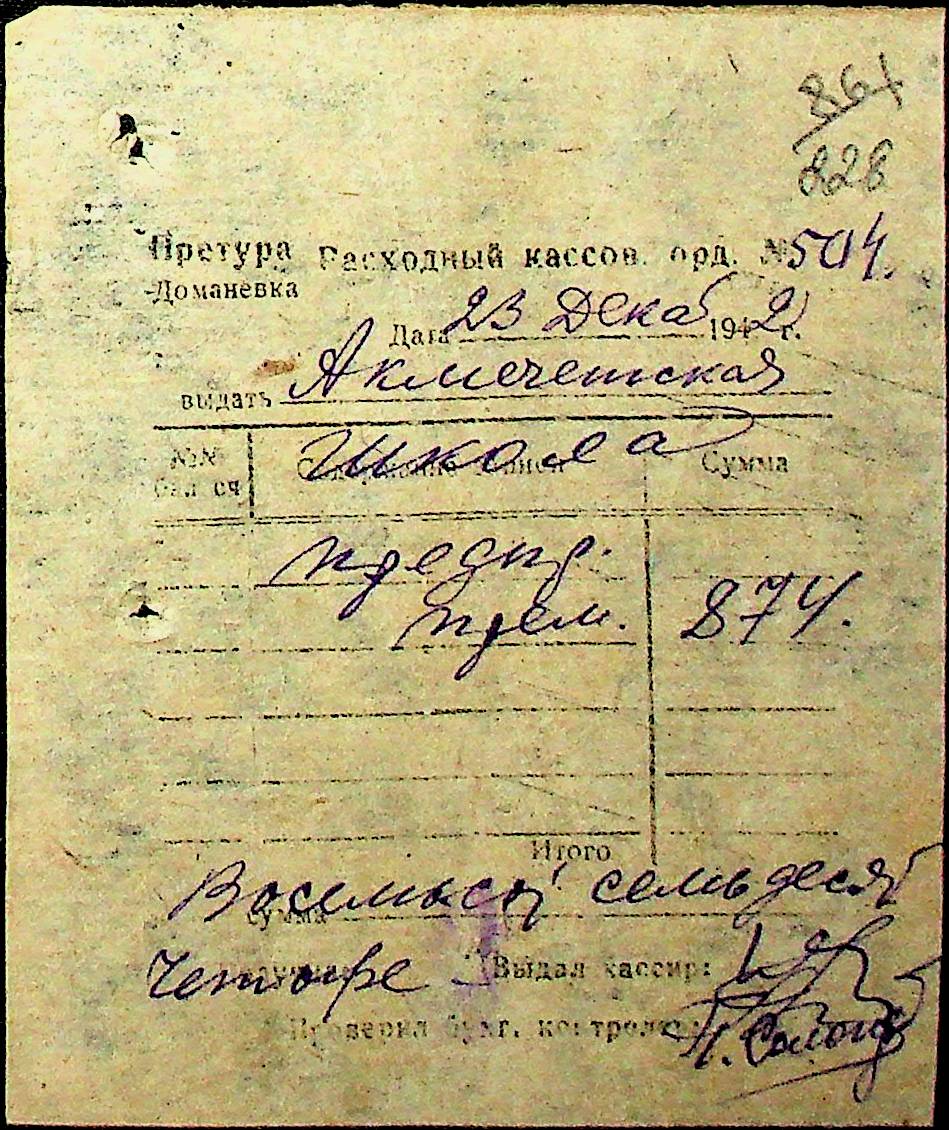 861
828
Претура Расходный кассов. орд. №504.
Доманевка
Дата 23 Декаб 1942 г.
выдать Акмечетская
школа
№№ бал сч
Содержание записи
Сумма
предпр.
прем. 874.
Итого
Восемьсот семьдесят
сумма
четыре Выдал кассир:
Проверил бухг. контролер